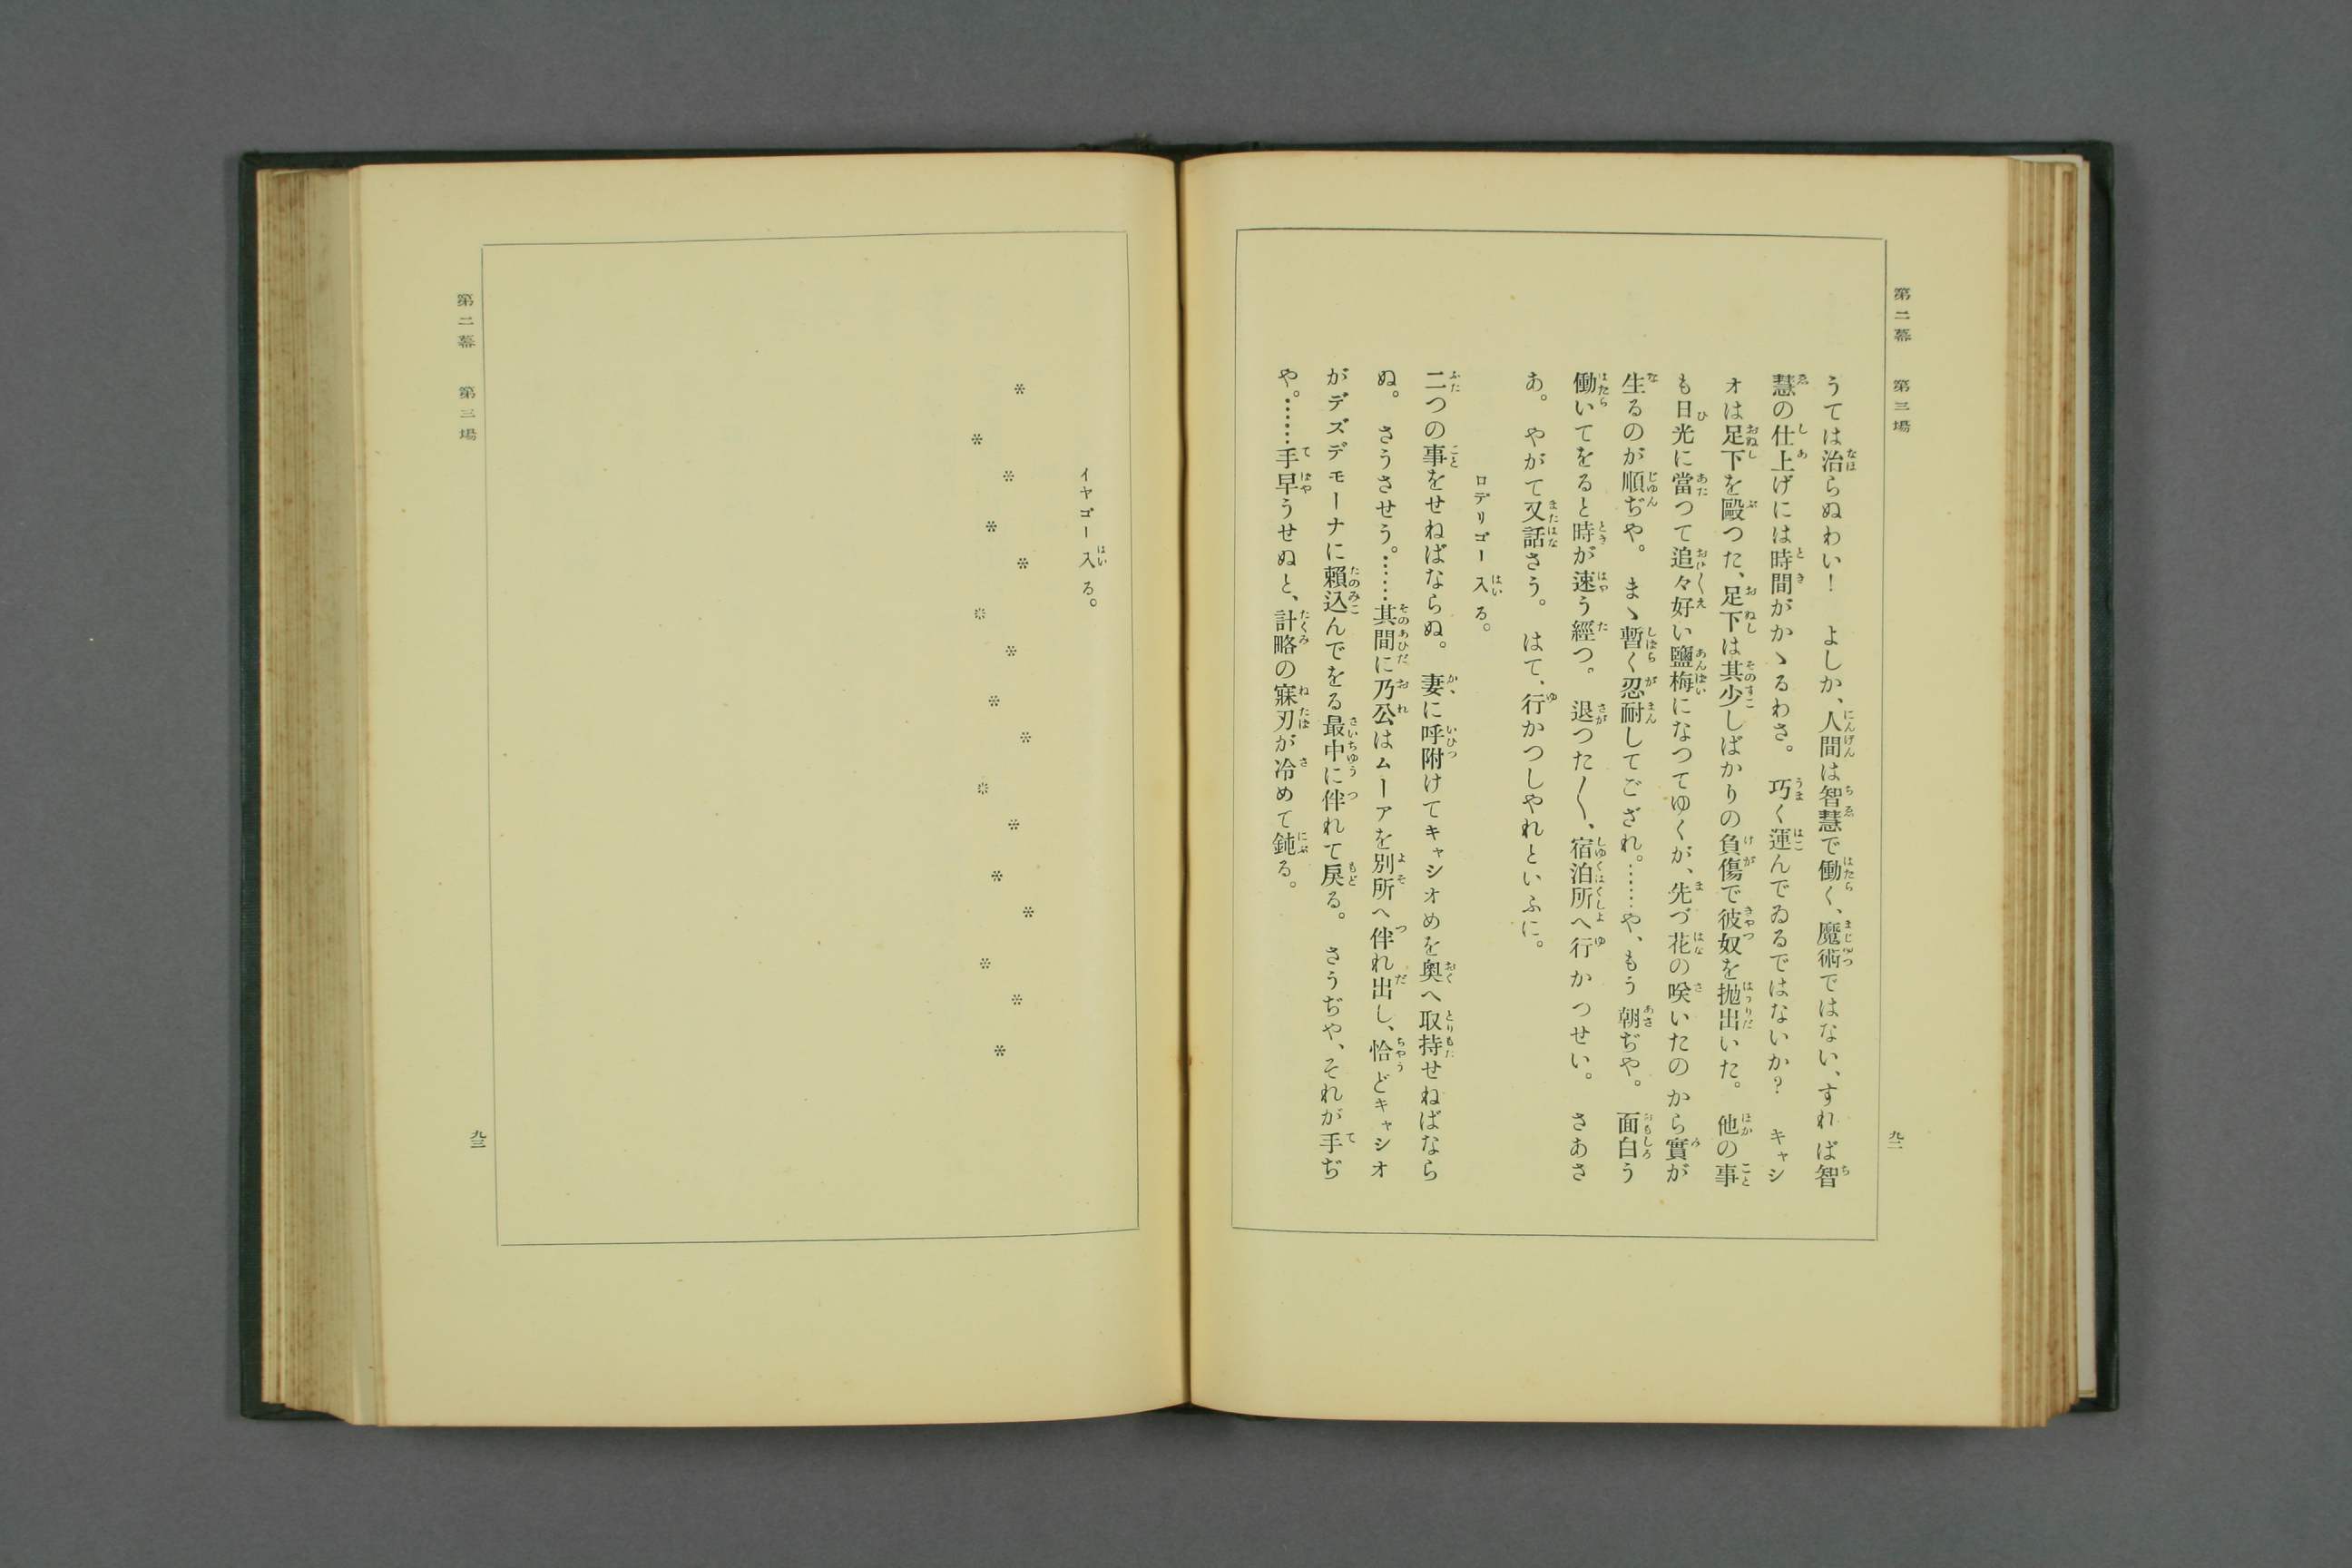 第二幕　第三場
うては治らぬわい！　よしか、人間は智慧で働く、魔術ではない、すれば智
慧の仕上げには時間がかゝるわさ。　巧く運んでゐるではないか？　キャシ
オは足下を毆つた、足下は其少しばかりの負傷で彼奴を抛出いた。　他の事
も日光に當つて追々好い鹽梅になつてゆくが、先づ花の咲いたのから實が
生るのが順ぢや。　まゝ暫く忍耐してござれ。……や、もう朝ぢや。　面白う
働いてをると時が速う經つ。　退つた〱、宿泊所へ行かつせい。　さあさ
あ。　やがて又話さう。　はて、行かつしやれといふに。
ロデリゴー入る。
二つの事をせねばならぬ。　妻に呼附けてキャシオめを奥へ取持せねばなら
ぬ。　さうさせう。……其間に乃公はムーアを別所へ伴れ出し、恰どキャシオ
がデズデモーナに頼込んでをる最中に伴れて戻る。　さうぢや、それが手ぢ
や。……手早うせぬと、計略の寐刃が冷めて鈍る。
九二
イヤゴー入る。
＊　＊　＊　＊　＊　＊　＊　＊　＊　＊　＊　＊　＊　＊　＊　＊
第二幕　第三場
九三